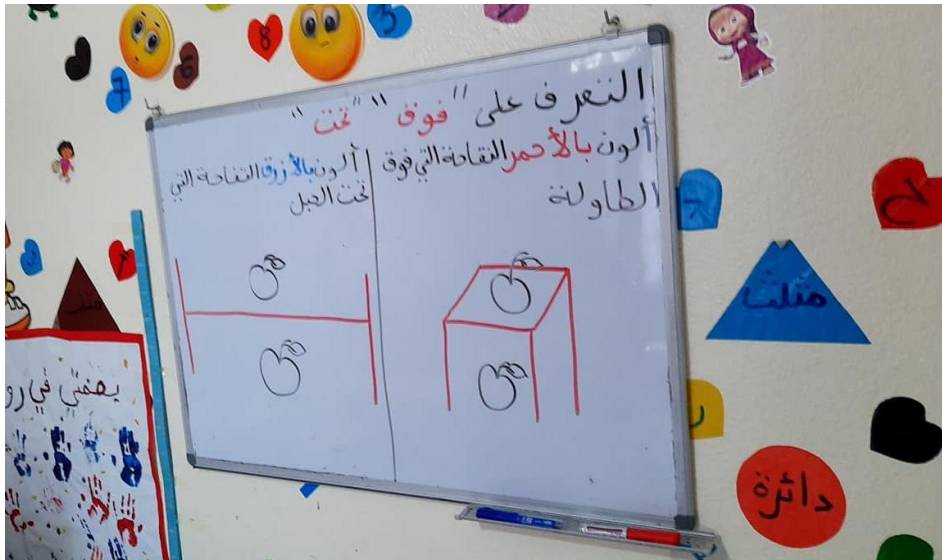 التعرف على "فوق" "تحت"
ألون بالأحمر التفاحة التي فوق
الطاولة
ألون بالأزرق التفاحة التي
تحت الحبل
مثلث
دائرة
بصمتي في رو
8
7
6